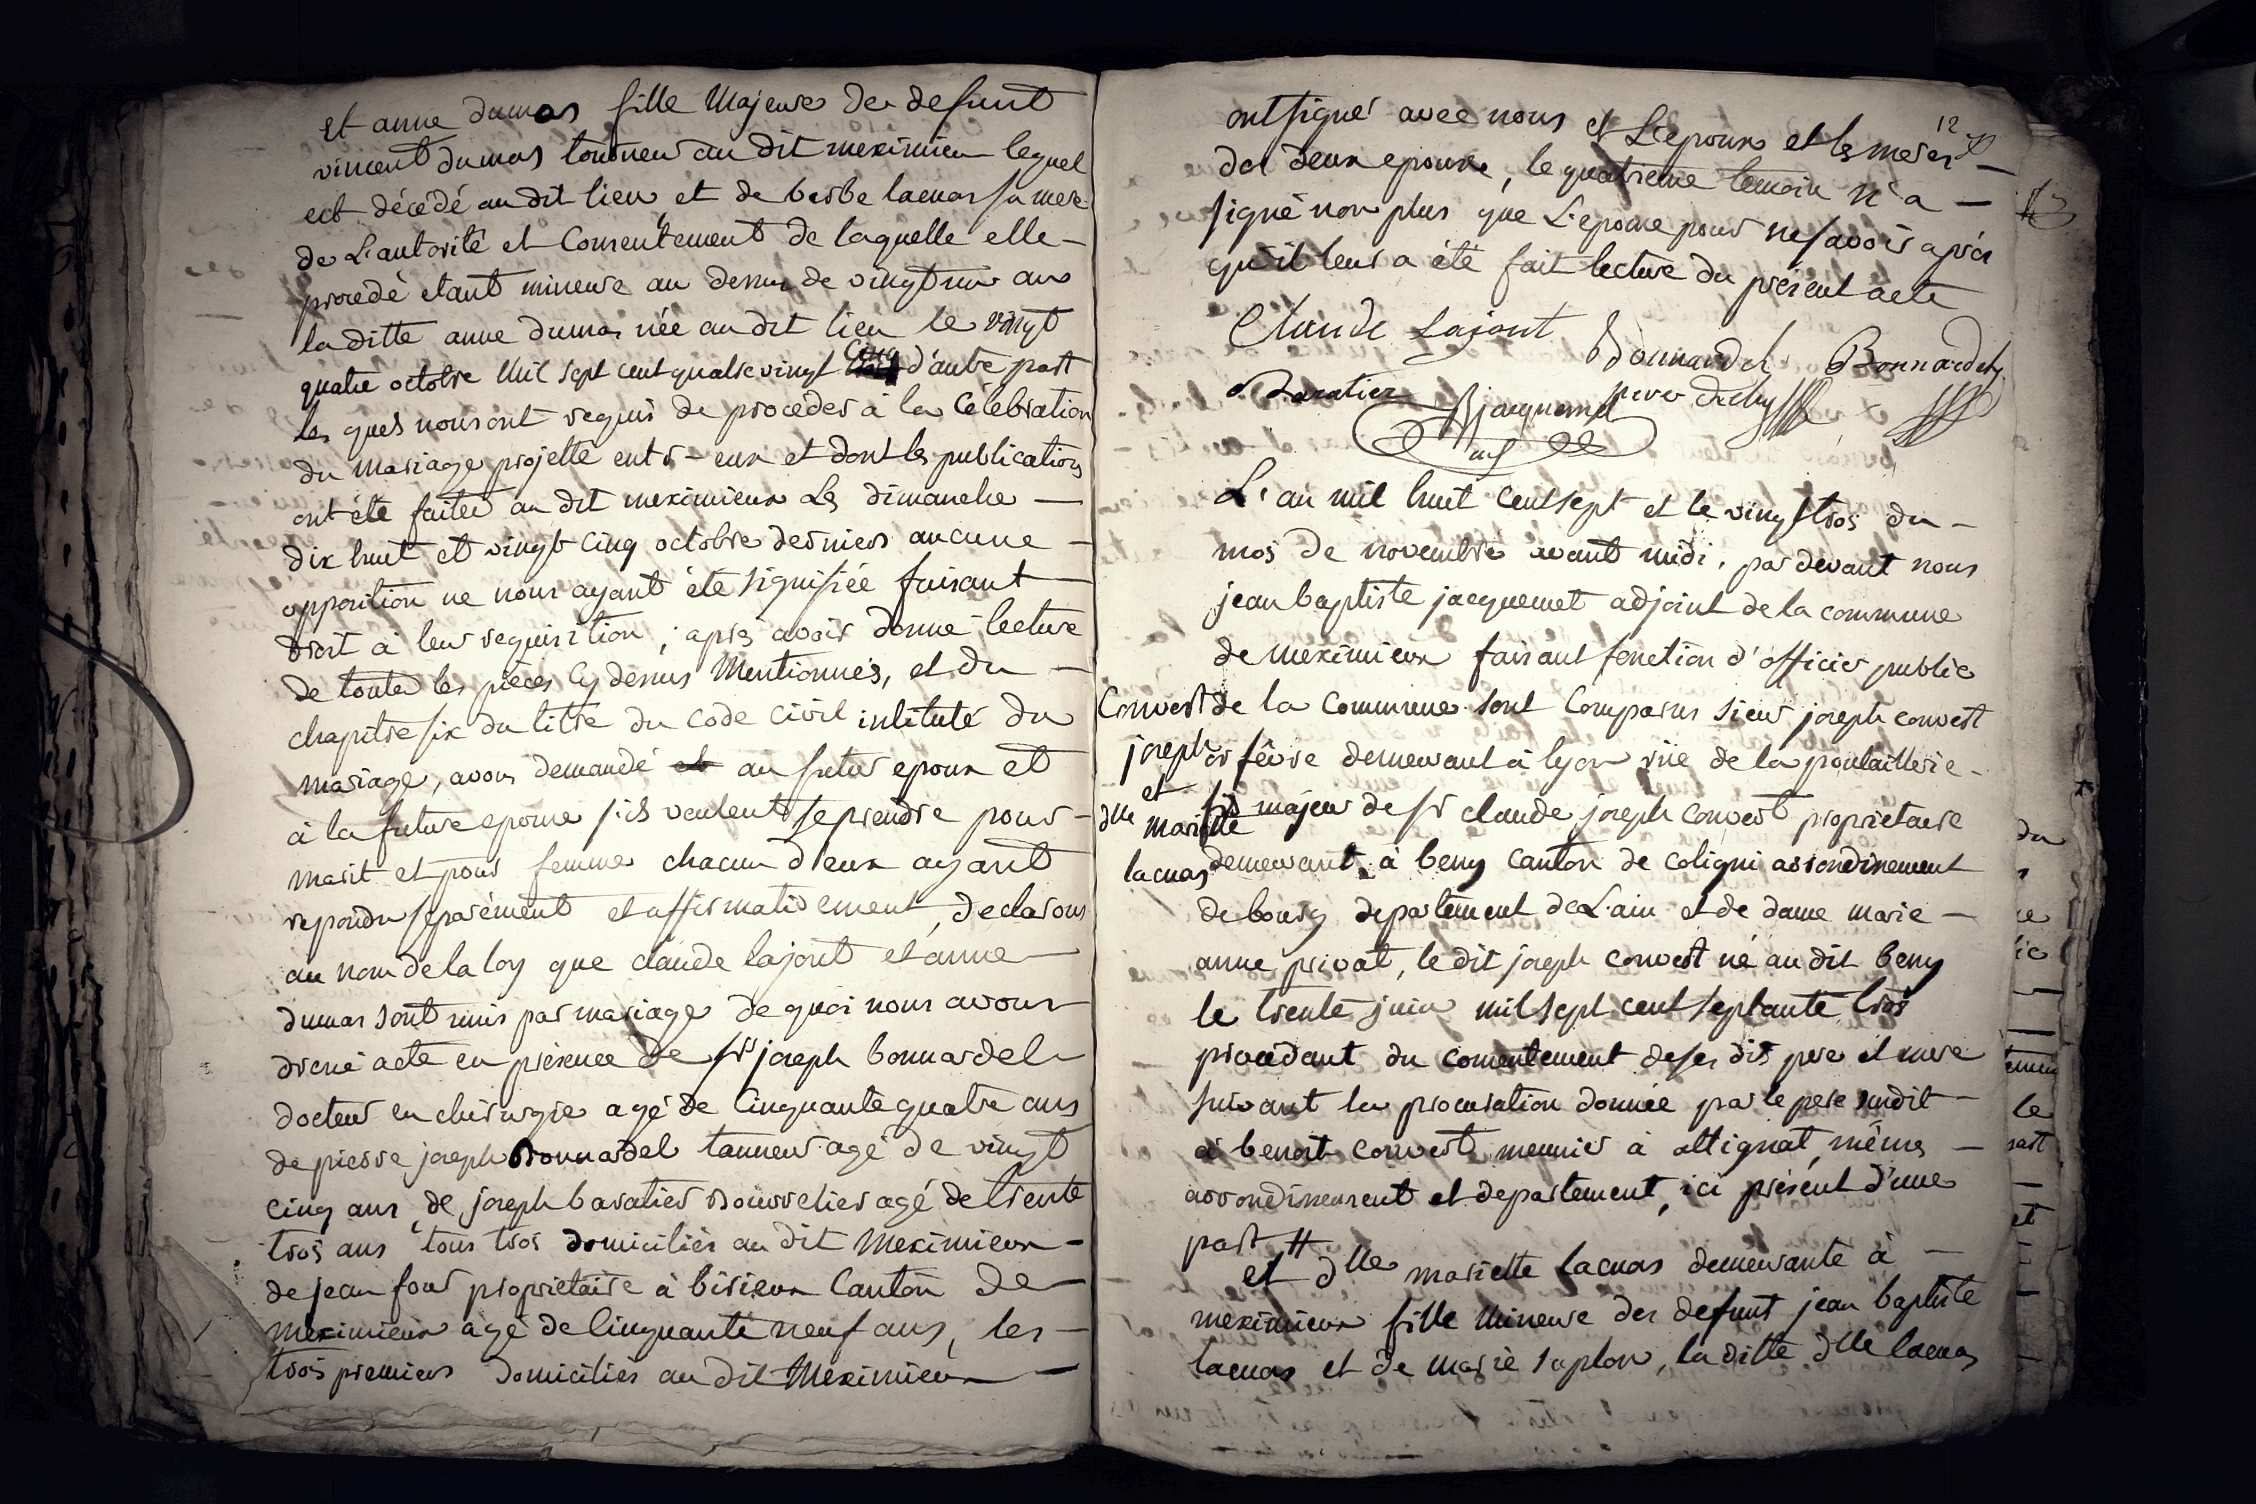 et anne dumas fille Majeure de defunt
vincent dumas tonneu au dit meximieu lequel
est décédé au dit lieu et de barbe lacuas sa mere
de L'autorité et Consentement de laquelle elle
procedé etant mineure au dessus de vingt un ans
la ditte anne dumas née au dit lieu le vingt
quatre octobre Mil sept cent quatre vingt Cinq d'autre part
les quels nous ont requis de proceder à la Célébration
du mariage projetté entr-eux et dont les publications
ont été faites au dit meximieux Les dimanche
dix huit et vingt Cinq octobre derniers aucune
opposition ne nous ayant été signifiée faisant
droit à leur requisition, apres avoir donné lecture
de toutes les pièces Cy dessus Mentionnées, et du
chapitre six du titre du Code Civil intitulé du
mariage, avons demandé au futur epoux et
à la future epouse s'ils veulent se prendre pour
marit et pour femme chacun d'eux ayant
repondu séparément et affirmativement, declarons
au nom de la loy que claude lajont et anne
dumas sont unis par mariage de quoi nous avons
dréné acte en présence de Sr joseph bonnardel
docteur en chirurgie agé de Cinquante quatre ans
de pierre joseph Bonnardel tanneur agé de vingt
cinq ans, de joseph baratier Bourrelier agé de trente
trois ans tous trois domiciliés au dit Meximieux
de jean four proprietaire à birieux Canton de
Meximieux agé de Cinquante neuf ans, les
trois premiers domiciliés au dit Meximieux
12
ont signés avec nous et L'epoux et les meres
des deux epoux, le quatrieme temoin n'a
signé non plus que L'epouse pour ne savoir après
qu'il leur a été fait lecture du présent acte
Claude Lajont Bonnardel Bonnardel
Baratier Bjacquemet
L'an mil huit Cent sept et le vingt trois du
mois de novembre avant midi, pardevant nous
jean baptiste jacquemet adjoint de la commune
de meximieux faisant fonction d'officier public
de la Commune sont Comparus sieur joseph convert
Convert
joseph
et
dlle mariette
lacuas
orfèvre demeurant à lyon rüe de la poulaillerie
fils majeur de Sr claude joseph convert proprietaire
demeurant à beny Canton de coligni arrondissement
de bourg departement de L'ain et de dame marie
anne privat, le dit joseph convert né au dit beny
le trente juin mil sept cent septante trois
procedant du consentement de ses dits pere et mere
suivant la procuration donnée par le pere susdit
à benoit convert meunier à attignat, même
arrondissement et departement, ici présent d'une
part #
et dlle mariette lacuas demeurante à
meximieux fille Mineure de defunt jean baptiste
lacuas et de marie saplon, la ditte dlle lacuas